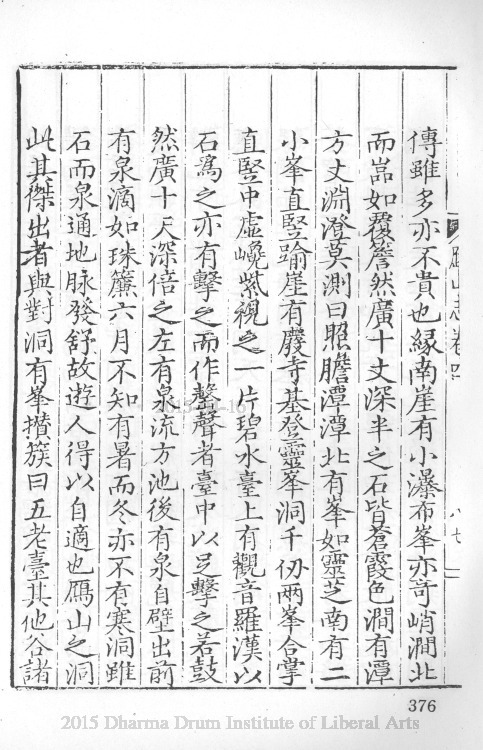 傳雖多亦不貴也緣南崖有小瀑布峯亦奇峭澗北
而嵓如覆簷然廣十丈深半之石皆蒼霞色澗有潭
方丈淵澄莫測曰照膽潭潭北有峯如靈芝南有二
小峯直竪踰崖有廢寺基登靈峯洞千仞兩峯合掌
直竪中虛巉紫視之一片碧水臺上有觀音羅漢以
石為之亦有擊之而作聲者臺中以足擊之若鼓
然廣十丈深倍之左有泉流方池後有泉自壁出前
有泉滴如珠簾六月不知有暑而冬亦不有寒洞雖
石而泉通地脉發舒故遊人得以自適也鴈山之洞
此其傑出者與對洞有峯攅簇曰五老臺其他谷諸
山志卷四
376
2015 Dharma Drum Institute of Liberal Arts